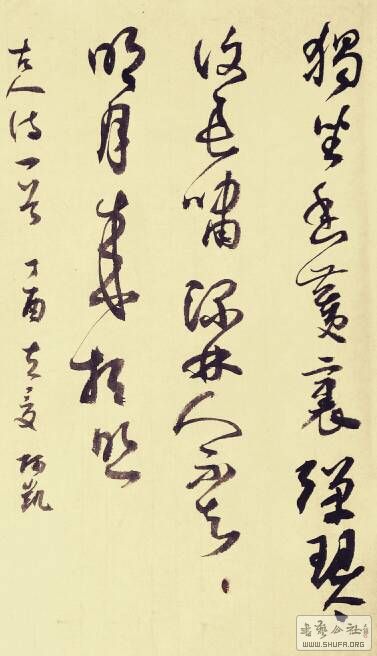 獨坐幽篁裏彈琴
復長嘯深林人不知
明月來相照
古人詩一首 丁酉 夏 凱
书艺公社
WWW.SHUFA.ORG